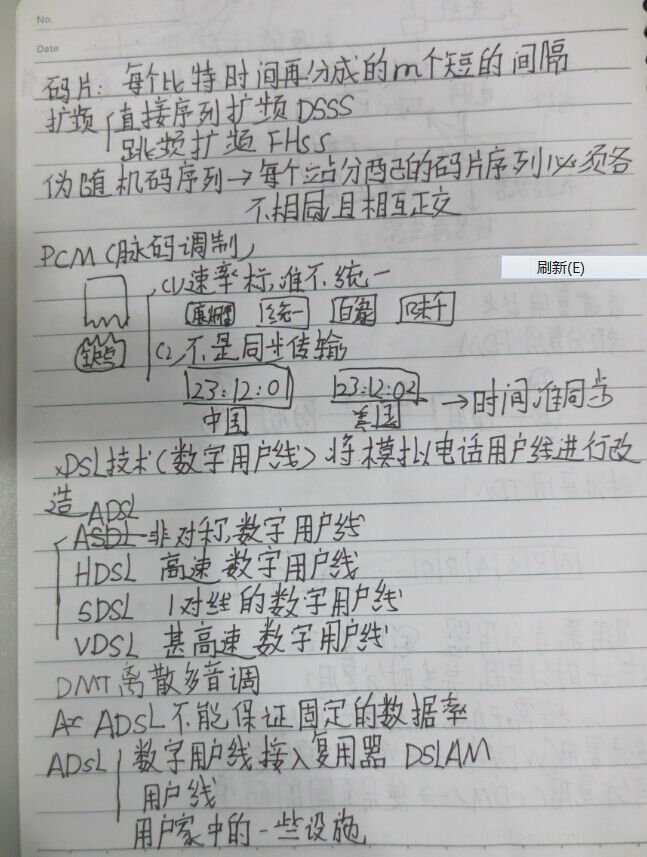 No.
Date
码片：每个比特时间再分成的m个短的间隔
扩频 直接序列扩频 DSSS
跳频扩频 FHSS
伪随机码序列→每个站分配的码片序列必须各
不相同且相互正交
PCM（脉码调制）
刷新(E)
(1)速率标准不统一
康师傅 统一 白象 味千
(2)不是同步传输
23:12:01 23:12:02 →时间准同步
中国 美国
xDSL技术（数字用户线）将模拟电话用户线进行改
造 ADSL
非对称数字用户线
HDSL 高速数字用户线
SDSL 1对线的数字用户线
VDSL 甚高速数字用户线
DMT 离散多音调
ADSL不能保证固定的数据率
ADSL 数字用户线接入复用器 DSLAM
用户线
用户家中的一些设施